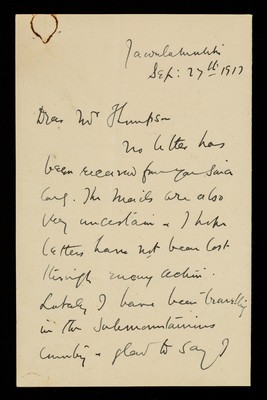 Jawalamukhi
Sep: 27th 1917
Dear Mr Thompson
No letter has
been received from you since
long. The mails are also
very uncertain & I hope
letters have not been lost
through enemy action.
Lately I have been travelling
in the submountainous
country & glad to say I